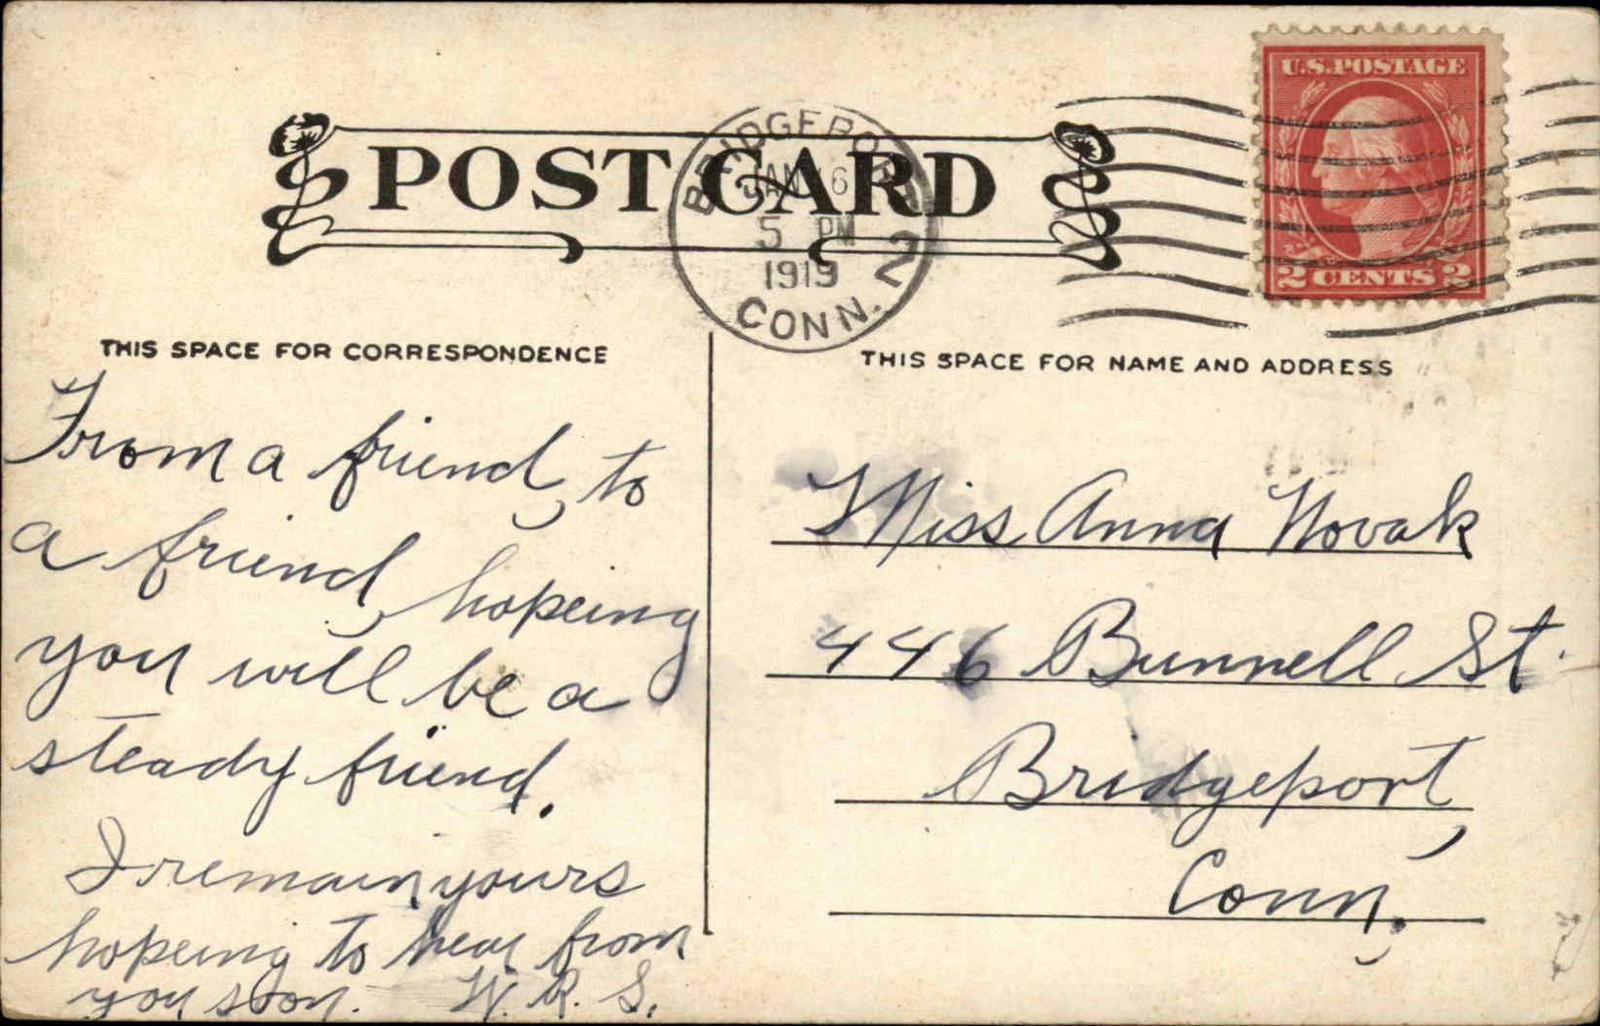 U.S. POSTAGE
2 CENTS 2
POST CARD
BRIDGEPORT
JAN 16
5 PM
1919
CONN. 2
THIS SPACE FOR CORRESPONDENCE
THIS SPACE FOR NAME AND ADDRESS
From a friend, to
a friend, hopeing
you will be a
steady friend.
I remain yours
hopeing to hear from
you soon. W. R. S.
Miss Anna Novak
446 Bunnell St.
Bridgeport,
Conn.